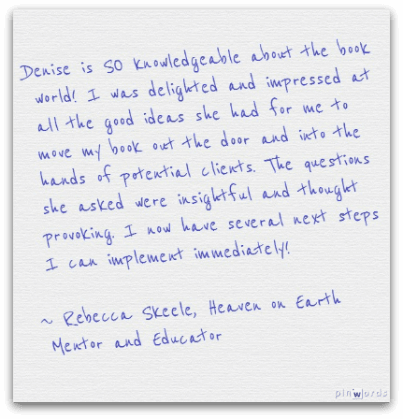 Denise is SO knowledgeable about the book
world! I was delighted and impressed at
all the good ideas she had for me to
move my book out the door and into the
hands of potential clients. The questions
she asked were insightful and thought
provoking. I now have several next steps
I can implement immediately!
~ Rebecca Skeele, Heaven on Earth
Mentor and Educator
pinwords